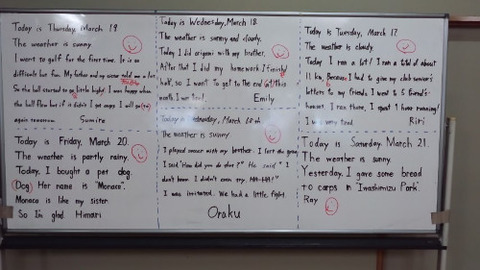 Today is Thursday, March 19
The weather is sunny
I went to golf for the first time. It is so
difficult but fun. My father and my sister told me a lot.
So the ball started to go little high. I was happy when
the ball flew but if it didn't I got angry. I will go
again tomorrow. Sumire
Today is Wednesday, March 18.
The weather is sunny and cloudy.
Today I did origami with my brother.
After that I did my homework I finish
half, so I want to get to the end
this month. I was tired. Emily
Today is Tuesday, March 17
The weather is cloudy.
Today I ran a lot! I ran a total of about
11 km, Because I had to give my club senior's
letters to my friends. I went to 5 friend's
houses. I ran there, I spent 1 hour running!
I was very tired. Riri
Today is Friday, March 20.
The weather is partly rainy.
Today, I bought a pet dog.
Dog Her name is "Monaca".
Monaca is like my sister
So I'm glad. Himari
Today is Wednesday, March 18th
The weather is sunny
I played soccer with my brother. I lost the game.
I said "How did you do that?" He said "I
don't know. I didn't even try.
I was irritated. We had a little fight.
Oraku
Today is Sameday March 21.
The weather is sunny
Yesterday, I gave some bread
to carps in "Iwashimizu Park".
Ray